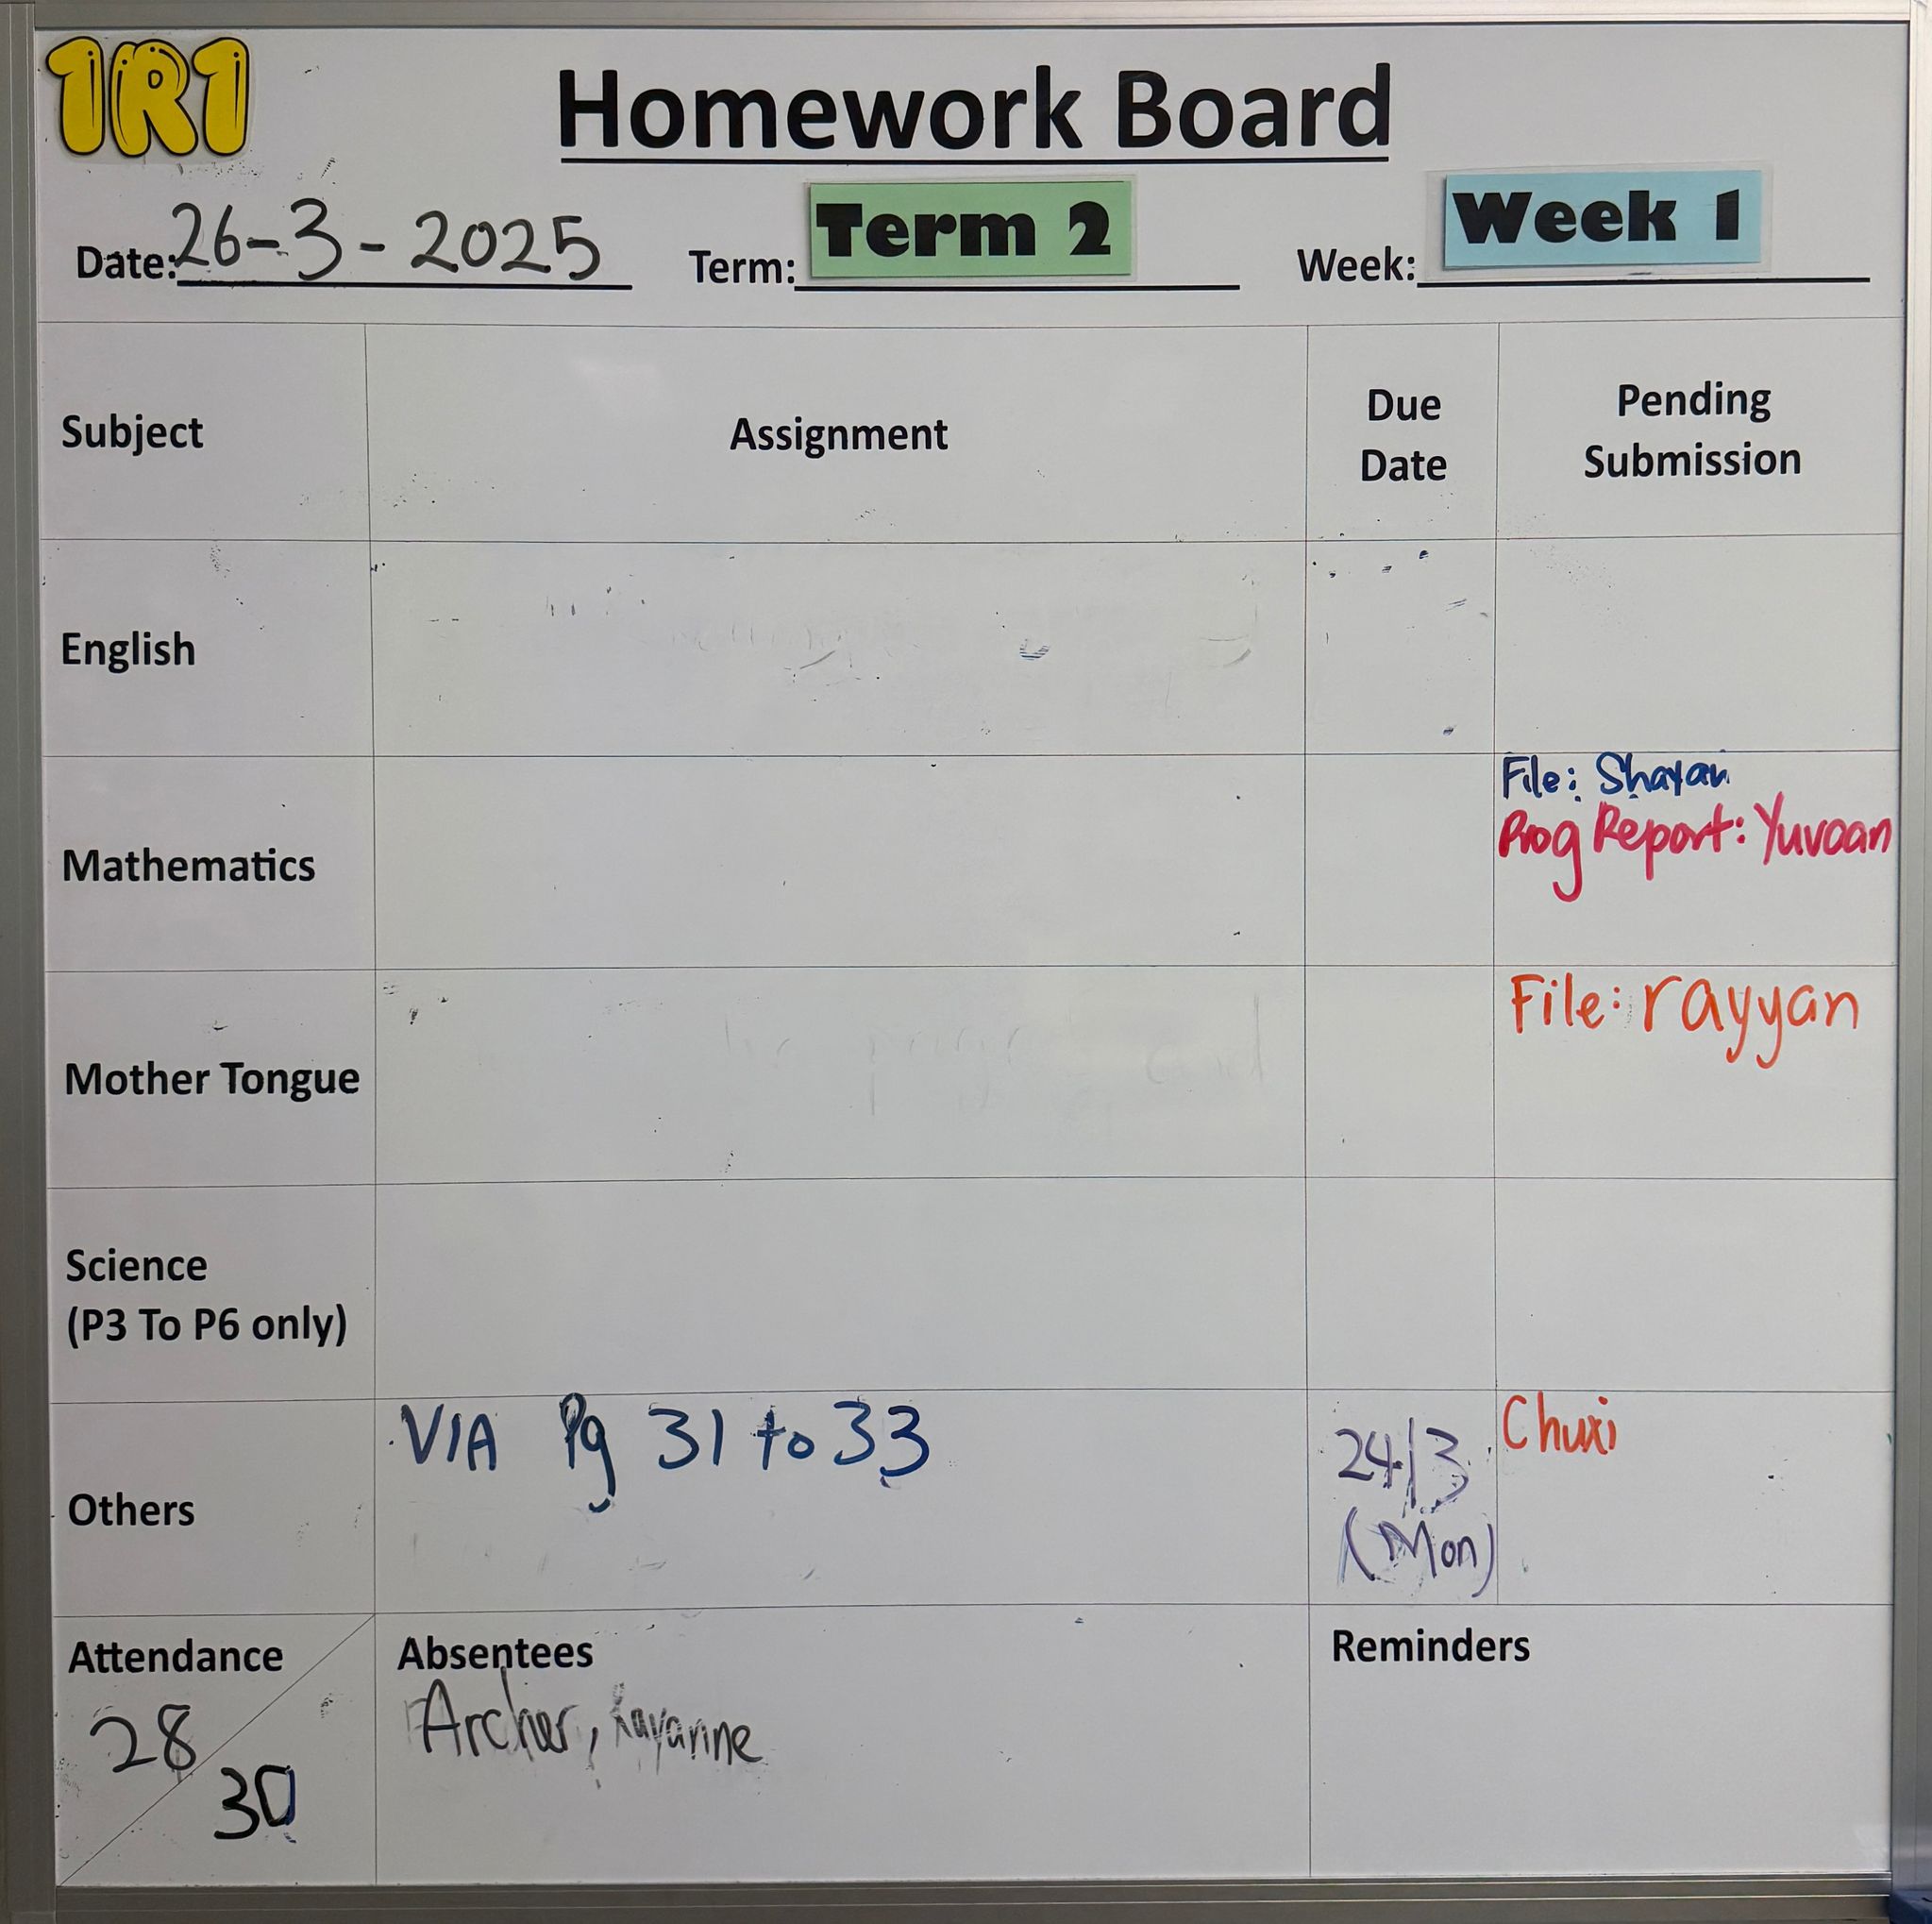 1R1
Homework Board
Date: 26-3-2025 Term: Term 2 Week: Week 1
Subject Assignment Due Date Pending Submission
English
Mathematics
File: Shayan
Prog Report: Yuvaan
Mother Tongue
File: rayyan
Science
(P3 To P6 only)
Others
VIA Pg 31 to 33
24/3
(Mon)
Chuxi
Attendance
28
30
Absentees
Archer,
Reminders